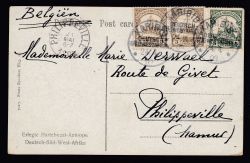 Belgiën
Post card
PHILIPPEVILLE
Mademoiselle Marie Derwael
Route de Givet
Philippeville
(Namur)
Erlegte Hartebeest-Antilope
Deutsch-Süd-West-Afrika